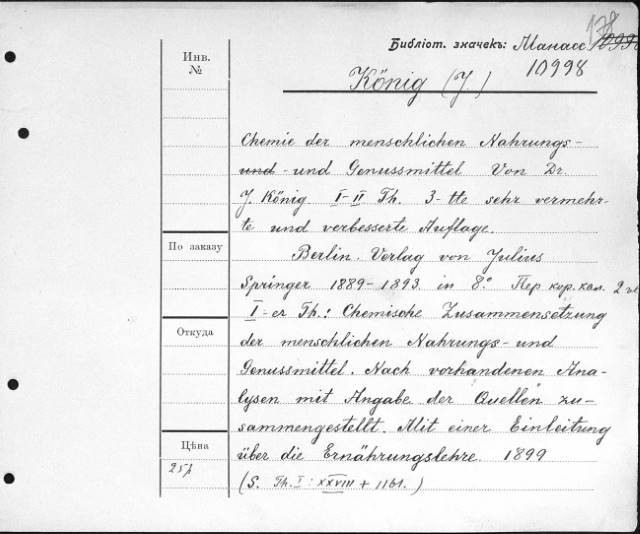 178
Библіот. значекъ: Манасс 10998
Инв. №
König (J.)
Chemie der menschlichen Nahrungs-
und - und Genussmittel Von Dr.
J. König I-II Th. 3-tte sehr vermehr-
te und verbesserte Auflage.
По заказу
Berlin. Verlag von Julius
Springer 1889-1893. in 8º. Пер кор. кол. 2
I-er Th.: Chemische Zusammensetzung
Откуда
der menschlichen Nahrungs- und
Genussmittel. Nach vorhandenen Ana-
lysen mit Angabe der Quellen zu-
sammengestellt. Mit einer Einleitung
Цѣна
über die Ernährungslehre. 1899
25р
(S. Th. I: XXVIII + 1161.)